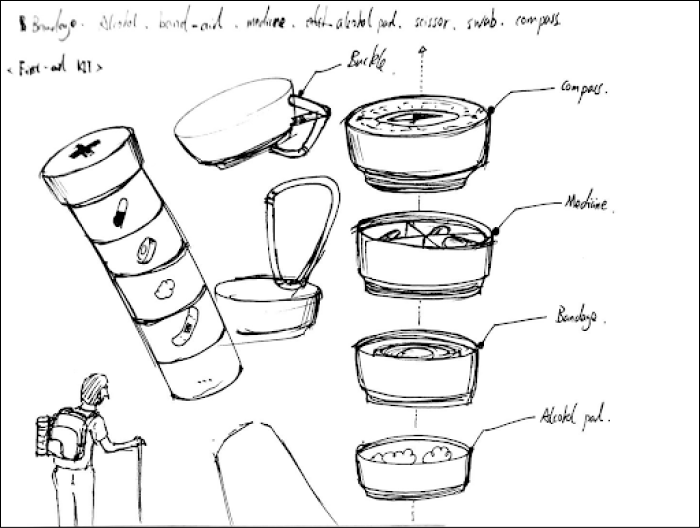 Bandage. Alcohol. band-aid. medicine. alcohol pad. scissor. swab. compass
< First-aid KIT >
Buckle.
Compass.
Medicine.
Bandage.
Alcohol pad.
...